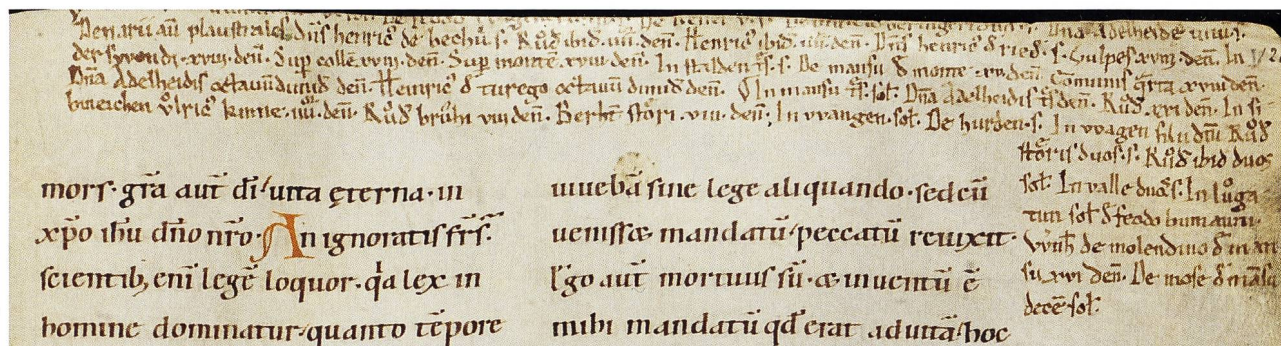 Denarii aut̄ plaustrales. Dn̄s henric᷒ de hechū. s. Růd̄ ibid. iiii. den̄. Henric᷒ ibid. iiii. den̄. Dn̄s henric᷒ đ ried. s. hulpes xviij. den̄. In
den̄. Sup̄ collē xviij. den̄. Sup̄ montē xviii. den̄. In stalden t̄s. s. De mansu đ monte xv. den̄. Comunis q̄rta xviii den̄.
Dn̄a Adelheidis octauū dimid̄ den̄. Henric᷒ đ turego octauū dimid̄ den̄. In mansu t̄s. sol̄. Dn̄a Adelheidis t̄s den̄. Růd̄. xvi den̄. In si
bineichen Ůlric᷒ kinne. iiii. den̄. Růd̄ brůhi viii den̄. Berht̄ stôri. viii. den̄. In vvangen. sol̄. De hurden. s. In vvagen filii dn̄i Růd̄
stôris duos. s. Růd̄ ibid duos
sol̄. In valle duos. In lůga
tun sol̄ đ feodo
de molendino
su xvi den̄. De mose đ mansu
decē sol̄.
mors. gr̄a aut̄ dī. uita ęterna. in
xp̄o ih̄u dn̄o nr̄o. An ignoratis fr̄s.
scientib; enī legē loquor. q̄a lex in
homine dominatur. quanto tēpore
uiuebā sine lege aliquando. sed cū
uenisset mandatū. peccatū reuixit.
Ego aut̄ mortuus sū. & inuentū ē
mihi mandatū qd̄ erat ad uitā. hoc